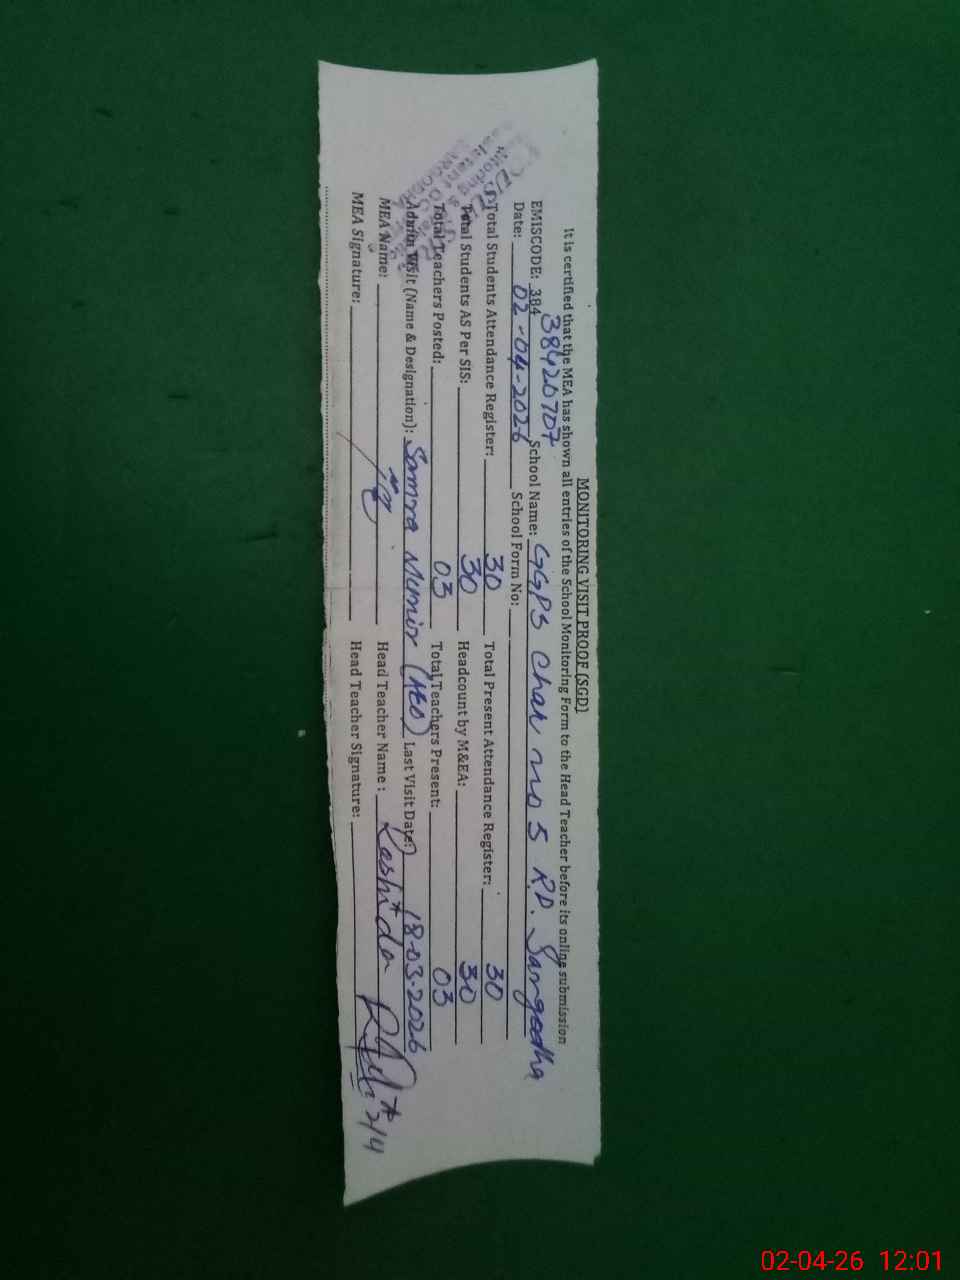 MONITORING VISIT PROOF (SGD)
It is certified that the MEA has shown all entries of the School Monitoring Form to the Head Teacher before its online submission
38420707
EMISCODE: 384 School Name: GGPS Chak no 5 R.D. Sargodha
Date: 02-04-2026 School Form No:
Total Students Attendance Register: 30 Total Present Attendance Register: 30
Total Students AS Per SIS: 30 Headcount by M&EA: 30
Total Teachers Posted: 03 Total Teachers Present: 03
Admin Visit (Name & Designation): Samra Munir (AEO) Last Visit Date: 18-03-2026
MEA Name: Head Teacher Name: Rashida
MEA Signature: Head Teacher Signature:
2/4
02-04-26 12:01